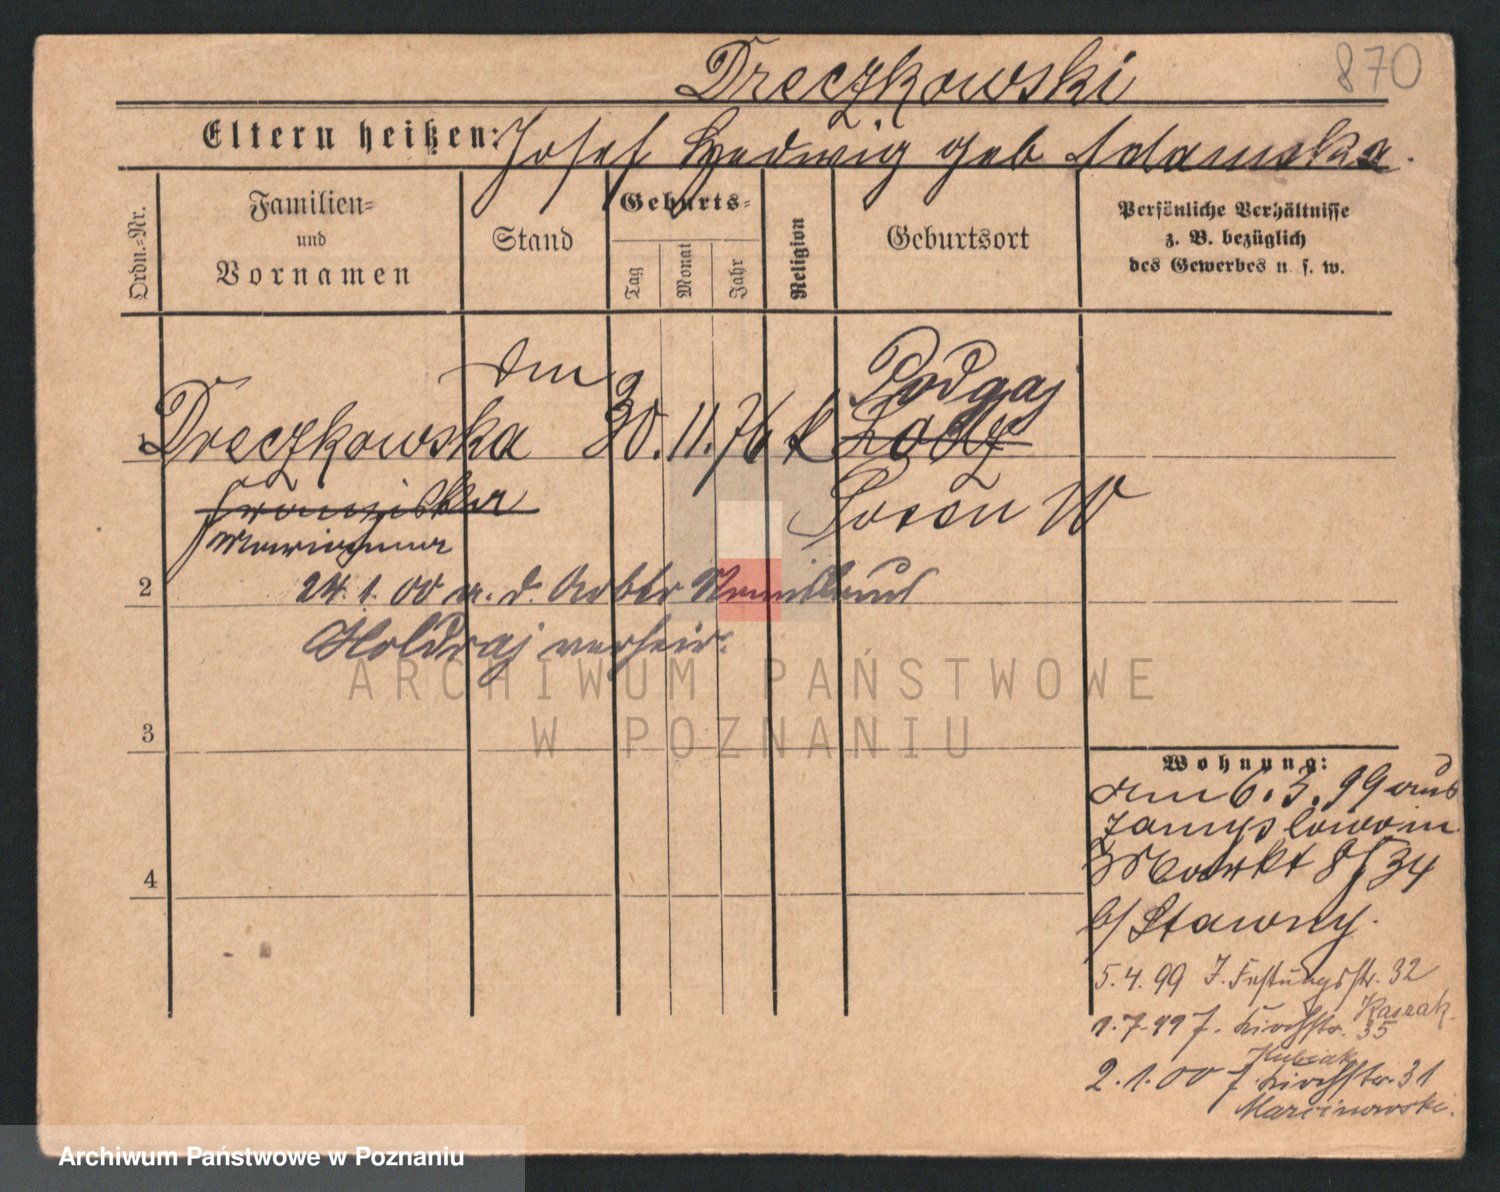 Dreczkowski
870
Eltern heißen: Josef Hedwig geb Adamska.
Ordn.=Nr.
Familien=
und
Vornamen
Stand
Geburts=
Tag
Monat
Jahr
Religion
Geburtsort
Persönliche Verhältnisse
z. B. bezüglich
des Gewerbes u. s. w.
1
Dreczkowska
30. 11. 76 k
Podgaj
Lodz
Posen W
Franziska
Marianna
2
24. 1. 00 m. d. Arbtr
verheir.
3
4
Wohnung:
am 6. 3. 99 aus
Zamyslowo in
Markt 8 / 34
b/ Stawny.
5. 4. 99 J. Festungsstr. 32
Kaszak.
1. 7. 99 J. Kirchstr. 35
Kubiak
2. 1. 00 J. Kirchstr. 31
Marcinowski.
ARCHIWUM PAŃSTWOWE
W POZNANIU
Archiwum Państwowe w Poznaniu